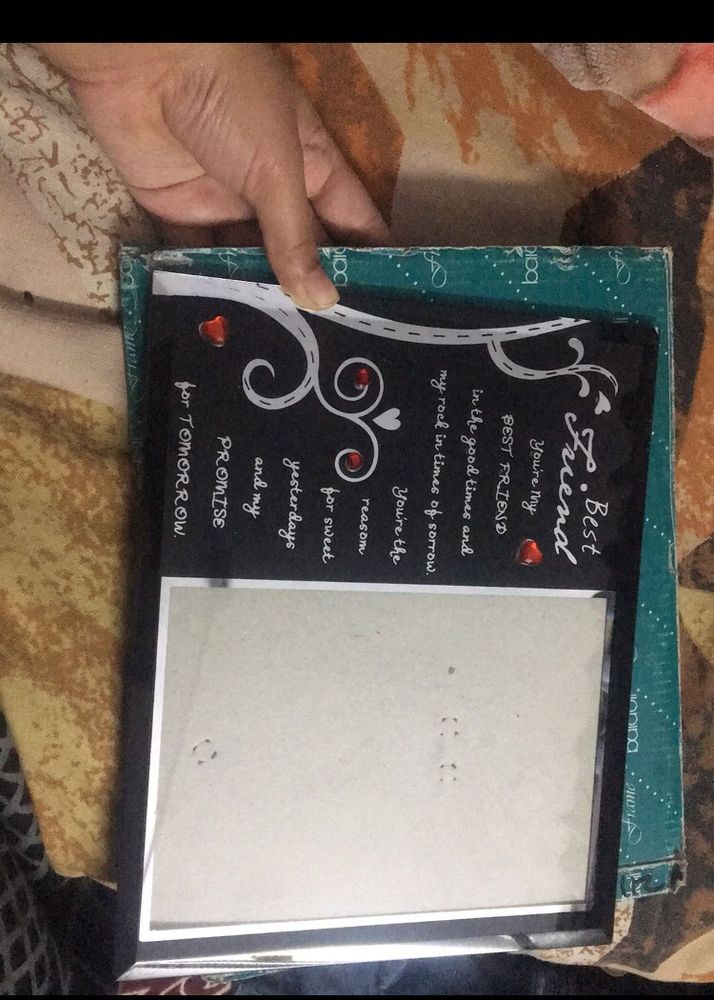 Best
Friend
You're My
BEST FRIEND
in the good times and
my rock in times of sorrow.
You're the
reasom
for sweet
yesterdays
and my
PROMISE
for TOMORROW.
Frame